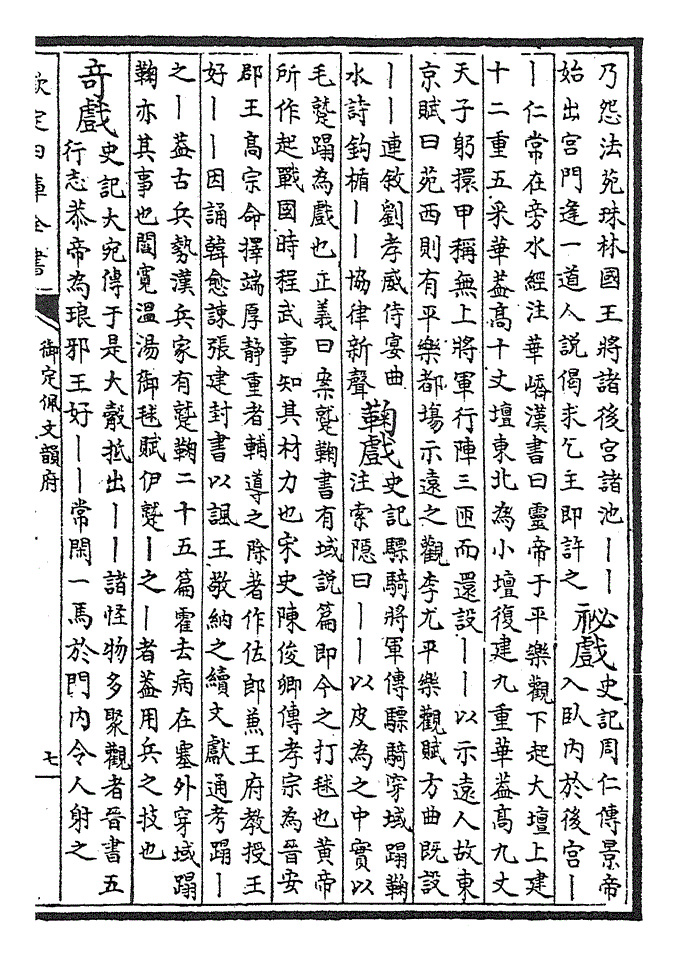 乃怨法苑珠林國王將諸後宮諸池丨丨
始出宮門逢一道人說偈求乞主即許之
祕戲
史記周仁傳景帝
入臥內於後宮丨
丨仁常在旁水經注華嶠漢書曰靈帝于平樂觀下起大壇上建
十二重五采華葢髙十丈壇東北為小壇復建九重華葢髙九丈
天子躬擐甲稱無上將軍行陣三匝而還設丨丨以示遠人故東
京賦曰苑西則有平樂都塲示遠之觀李尤平樂觀賦方曲既設
丨丨連敘劉孝威侍宴曲
水詩鈎楯丨丨協律新聲
鞠戲
史記驃騎將軍傳驃騎穿域蹋鞠
注索隱曰丨丨以皮為之中實以
毛蹵蹋為戲也正義曰案蹵鞠書有域說篇即今之打毬也黃帝
所作起戰國時程武事知其材力也宋史陳俊卿傳孝宗為晉安
郡王髙宗命擇端厚静重者輔導之除著作佐郎兼王府教授王
好丨丨因誦韓愈諫張建封書以諷王敬納之續文獻通考蹋丨
之丨葢古兵勢漢兵家有蹵鞠二十五篇霍去病在塞外穿域蹋
鞠亦其事也閻寛温湯御毬賦伊蹵丨之丨者葢用兵之技也
奇戲
史記大宛傳于是大觳抵出丨丨諸怪物多聚觀者晉書五
行志恭帝為琅邪王好丨丨常閑一馬於門內令人射之
欽定四庫全書
御定佩文韻府
七